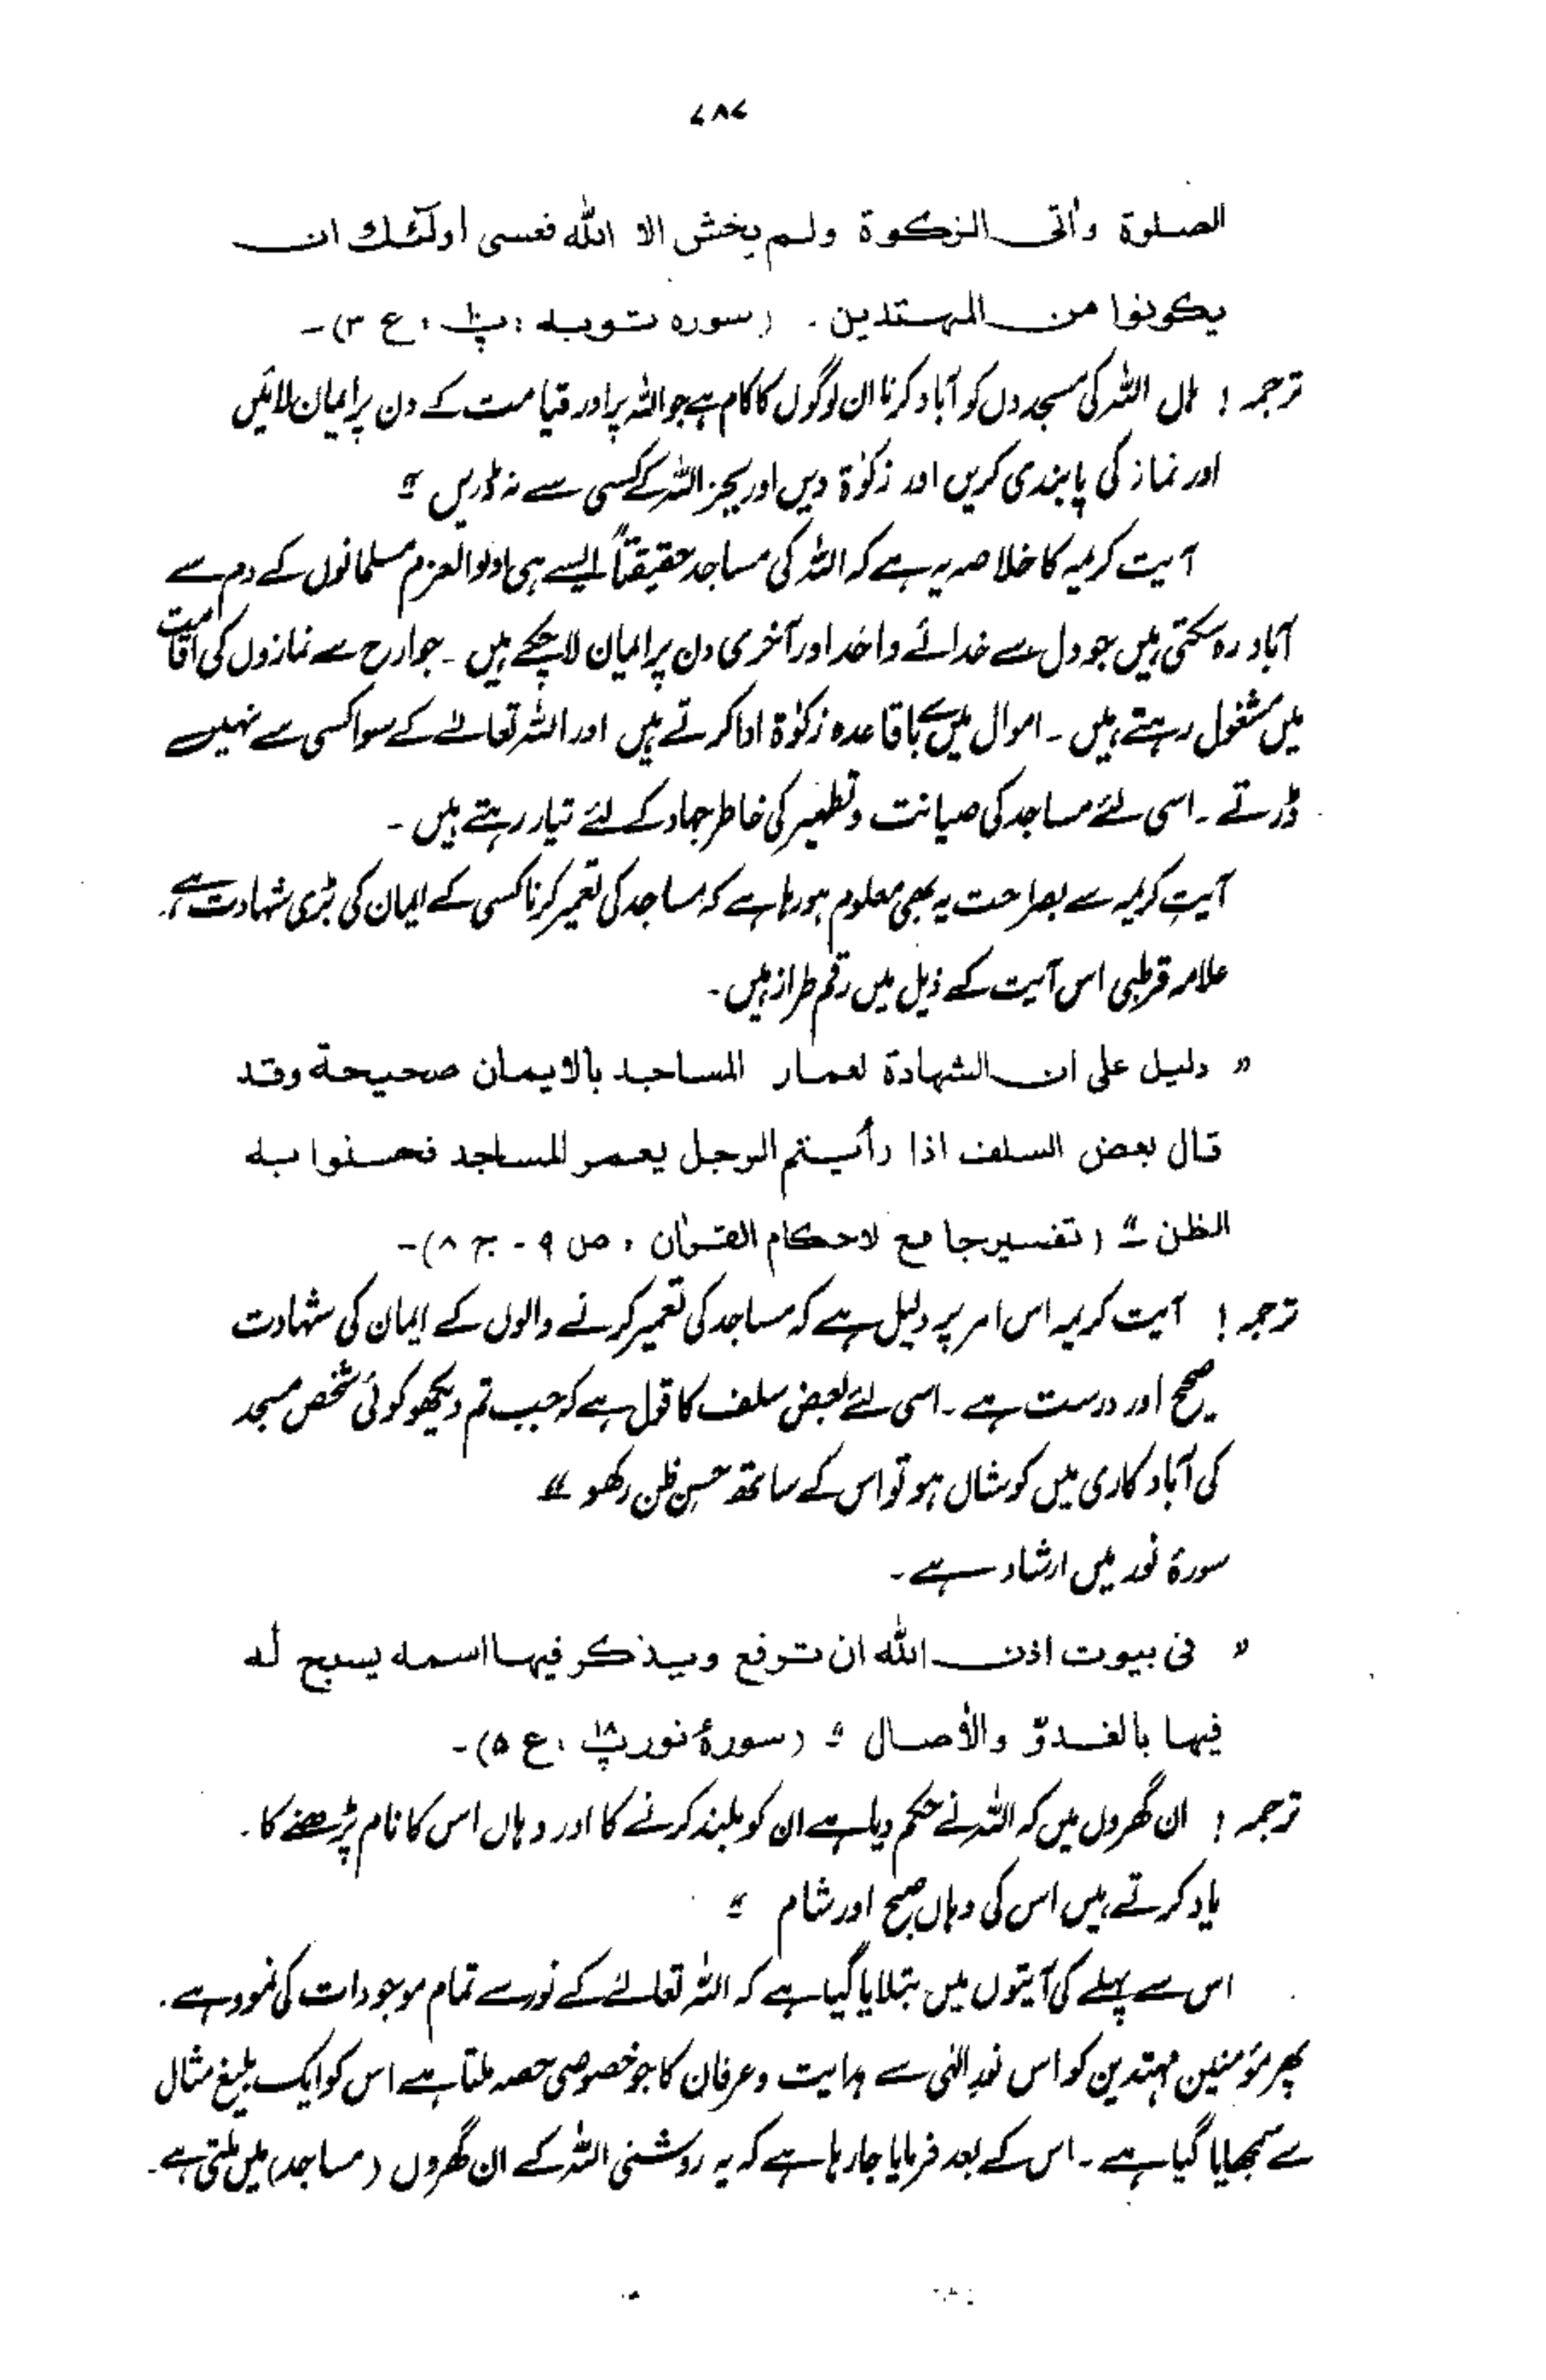 ۷۸۷
الصلوة وأتى الزكوة ولم يخش الا الله فعسى أولئك ان
يكونوا من المهتدين ۔ (سوره توبه ؛ پ۱۰ ، ع ۳)۔
ترجمہ ! ہاں اللہ کی مسجدوں کو آباد کرنا ان لوگوں کا کام ہے جو اللہ پر اور قیامت کے دن پر ایمان لائیں
اور نماز کی پابندی کریں اور زکوٰۃ دیں اور بجز اللہ کے کسی سے نہ ڈریں ‟
آیت کریمہ کا خلاصہ یہ ہے کہ اللہ کی مساجد حقیقتاً ایسے ہی اولوالعزم مسلمانوں کے دم سے
آباد رہ سکتی ہیں جو دل سے خدائے واحد اور آخری دن پر ایمان لا چکے ہیں ۔ جوارح سے نمازوں کی اقامت
میں مشغول رہتے ہیں ۔ اموال میں سے باقاعدہ زکوٰۃ ادا کرتے ہیں اور اللہ تعالےٰ کے سوا کسی سے نہیں
ڈرتے ۔ اسی لئے مساجد کی صیانت و تطہیر کی خاطر جہاد کے لئے تیار رہتے ہیں ۔
آیتِ کریمہ سے بصراحت یہ بھی معلوم ہو رہا ہے کہ مساجد کی تعمیر کرنا کسی کے ایمان کی بڑی شہادت ہے۔
علامہ قرطبی اس آیت کے ذیل میں رقم طراز ہیں ۔
‟ دليل على ان الشهادة لعمار المساجد بالايمان صحيحة وقد
قال بعض السلف اذا رأيتم الرجل يعمر المساجد فحسنوا به
الظن ‟ (تفسير جامع لاحكام القرآن ، ص ۹ ۔ ج ۸)۔
ترجمہ ! آیت کریمہ اس امر پر دلیل ہے کہ مساجد کی تعمیر کرنے والوں کے ایمان کی شہادت
صحیح اور درست ہے ۔ اسی لئے بعض سلف کا قول ہے کہ جب تم دیکھو کوئی شخص مسجد
کی آباد کاری میں کوشاں ہو تو اس کے ساتھ حسنِ ظن رکھو ‟
سورۂ نور میں ارشاد ہے ۔
‟ فى بيوت اذن الله ان ترفع ويذكر فيها اسمه يسبح له
فيها بالغدوّ والأصال ‟ (سورۂ نور پ۱۸ ، ع ۵)۔
ترجمہ ! ان گھروں میں کہ اللہ نے حکم دیا ہے ان کو بلند کرنے کا اور وہاں اس کا نام پڑھنے کا ۔
یاد کرتے ہیں اس کی وہاں صبح اور شام ‟
اس سے پہلے کی آیتوں میں بتلایا گیا ہے کہ اللہ تعالےٰ کے نور سے تمام موجودات کی نمود ہے ۔
پھر مؤمنین مہتدین کو اس نورِ الٰہی سے ہدایت و عرفان کا جو خصوصی حصہ ملتا ہے اس کو ایک بلیغ مثال
سے سمجھایا گیا ہے ۔ اس کے بعد فرمایا جا رہا ہے کہ یہ روشنی اللہ کے ان گھروں (مساجد) میں ملتی ہے ۔